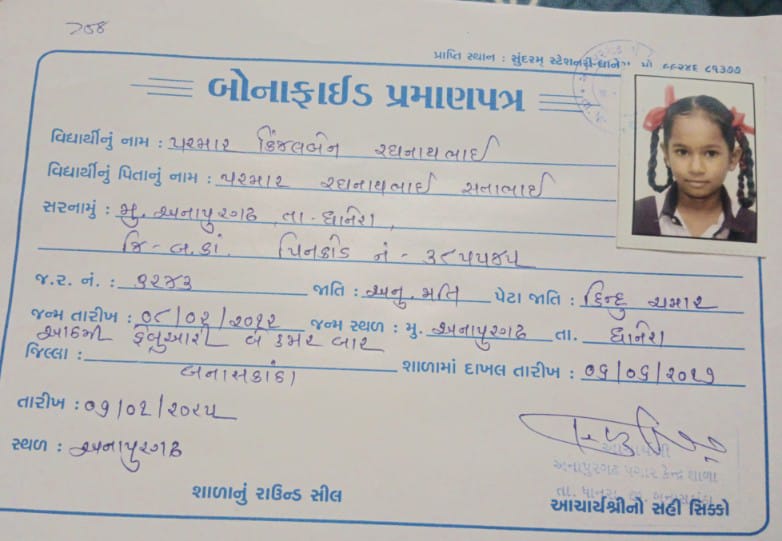 208
પ્રાપ્તિ સ્થાન : સુંદરમ્ સ્ટેશનરી-ધાનેરા મો ૯૯૨૪૬ ૮૧૩૭૭
બોનાફાઈડ પ્રમાણપત્ર
વિદ્યાર્થીનું નામ : પરમાર કિંજલબેન રઘનાથભાઈ
વિદ્યાર્થીનું પિતાનું નામ : પરમાર રઘનાથભાઈ સનાભાઈ
સરનામું : મુ. અનાપુરગઢ, તા - ધાનેરા,
જિ - બ.કાં. પિનકોડ નં - ૩૮૫૫૪૫
જ.ર. નં. : ૬૨૪૩ જાતિ : અનુ. જાતિ પેટા જાતિ : હિન્દુ ચમાર
જન્મ તારીખ : ૦૮/૦૨/૨૦૧૨ જન્મ સ્થળ : મુ. અનાપુરગઢ તા. ધાનેરા
આઠમી ફેબ્રુઆરી બે હજાર બાર
જિલ્લા : બનાસકાંઠા શાળામાં દાખલ તારીખ : ૦૬/૦૬/૨૦૧૭
તારીખ : ૦૧/૦૨/૨૦૨૫
સ્થળ : અનાપુરગઢ
આચાર્યશ્રી
અનાપુરગઢ પગાર કેન્દ્ર શાળા
તા. ધાનેરા, જી. બનાસકાંઠા
શાળાનું રાઉન્ડ સીલ આચાર્યશ્રીનો સહી સિક્કો